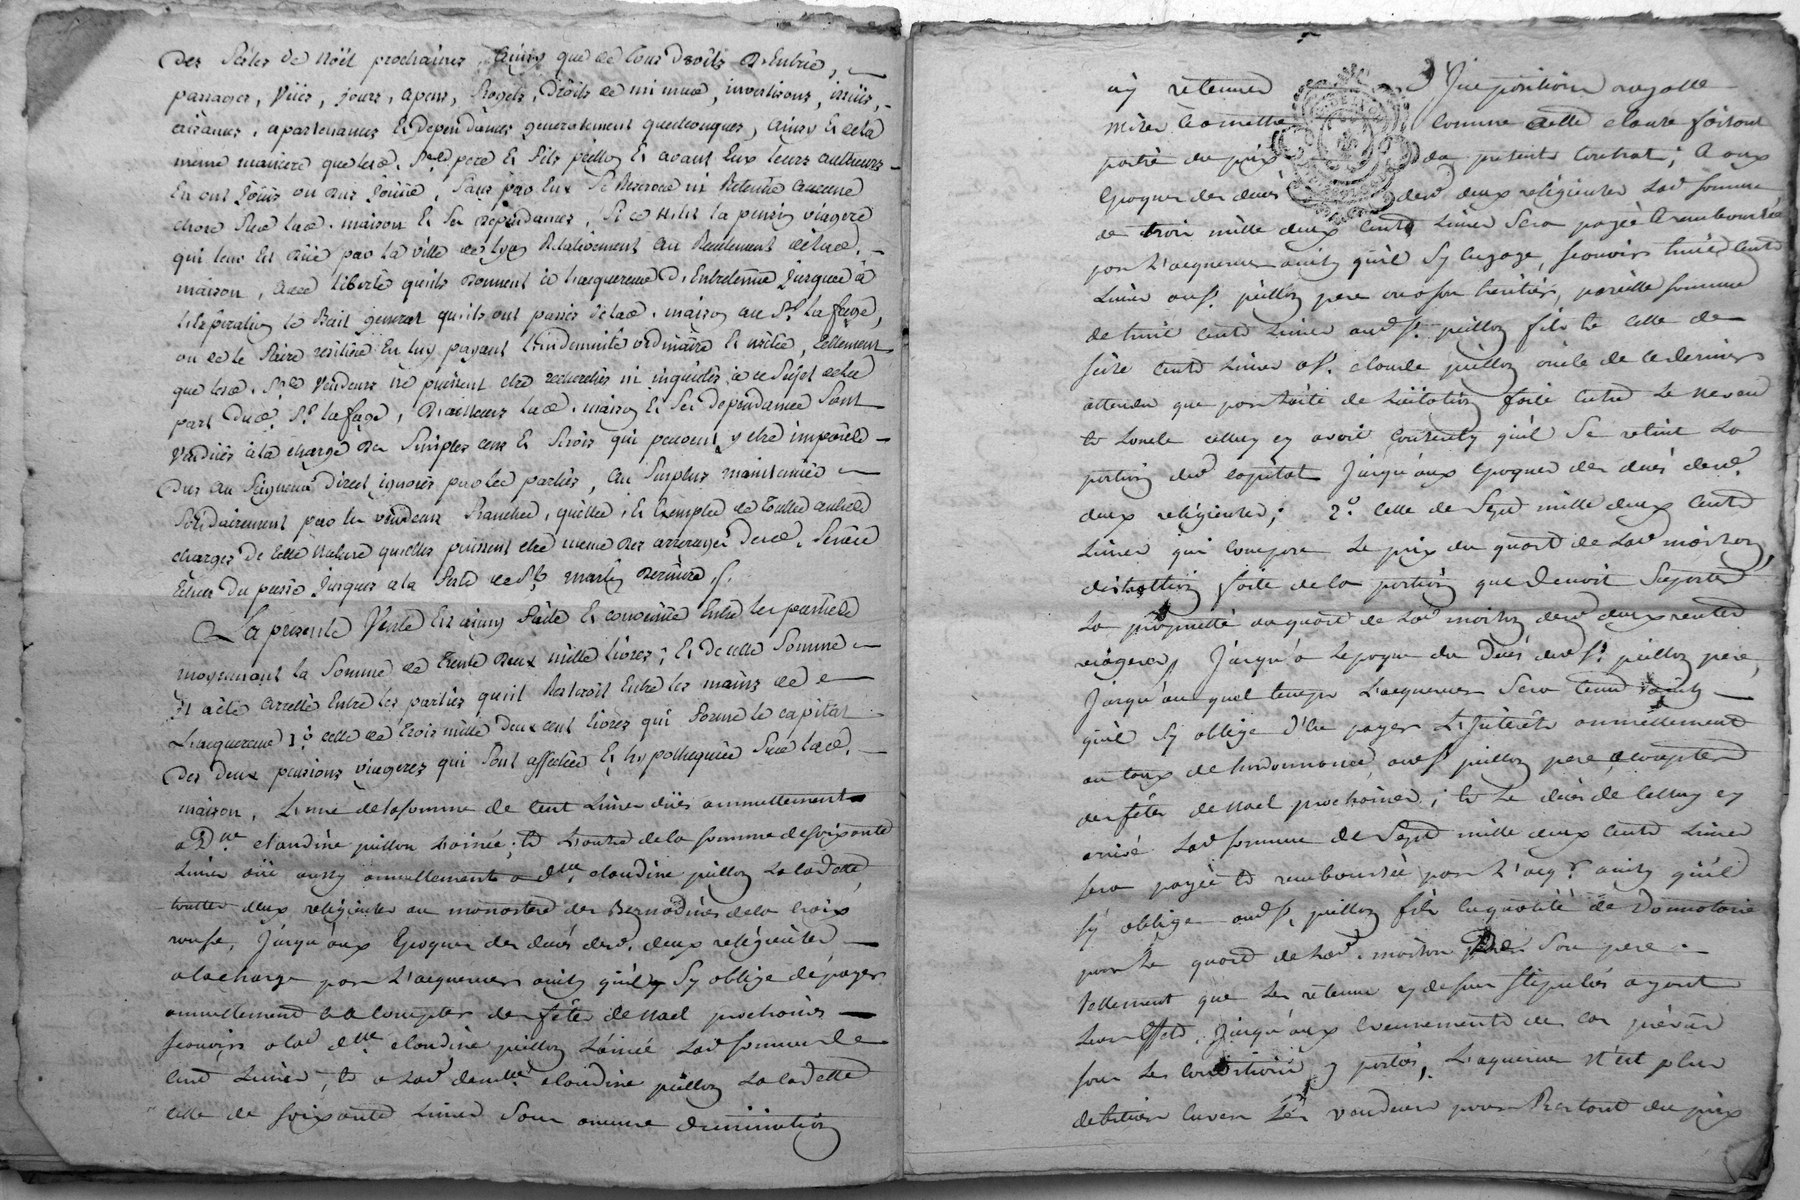 des fêtes de Noël prochaines, ainsy que de tous droits d'Entrée,
passages, Vües, jours, apens, Droits de mi mur, investisons, issües,
aisances, apartenances Et dépendances generalement quelconques, ainsy Et de la
même maniere que lesd. Srs pere Et fils peillon Et avant Eux leurs autheurs
En ont Joüis ou dus Joüir, sans par Eux se Reserver ni Retenir aucune
chose sur lad. maison Et ses dépendances, si ce n'est la pension viagere
qui leur Est düe par la ville de Lyon Relativement au Reculement de lad.
maison, avec liberté qu'ils donnent à l'acquereur d'Entretenir jusques à
l'Expiration le Bail general qu'ils ont passé de lad. maison au Sr. Lafage,
ou de le faire resilier En luy payant l'indemnité ordinaire Et usitée, tellement
que lesd. Srs Vendeurs ne puissent etre recherchés ni inquietés à ce sujet de la
part dud. Sr. Lafage, D'ailleurs lad. maison Et ses dépendances sont
Vendües à la charge des simples cens Et servis qui peuvent y etre imposés
dus au seigneur direct ignorés par les parties, au surplus maintenüe
solidairement par les vendeurs franche, quitte, et Exempte de toutes autres
charges de cette nature qu'elles puissent etre même des arrerages desd. servis
Echus du passé jusques à la fete de St. martin derniere.
La presente Vente Est ainsy faite Et convenüe Entre les parties
moyennant la somme de trente deux mille livres; Et de cette somme
il a été arretté Entre les parties qu'il Resteroit Entre les mains de
L'acquereur 1o. celle de trois mille deux cent livres qui forme le capital
des deux pensions viageres qui sont affectées Et hypothequées sur lad.
maison, L'une de la somme de cent Livres düe annuellement
a Dlle claudine peillon L'ainée, et L'autre de la somme de soixante
Livres düe aussy annuellement a dlle. claudine peillon La cadette
touttes deux religieuses au monastere des Bernardines de la croix
rousse, Jusqu'aux Epoques des decès desd. deux religieuses
a la charge par L'acquereur ainsy qu'il sy oblige de payer
annuellement a compter des fêtes de Noel prochaines
scavoir a lad dlle claudine peillon L'ainée Lad somme de
cent Livres, et a Lad demlle claudine peillon La cadette
celle de soixante Livres sans aucune diminution
ny retenue d'Imposition royalle
mise ou a mettre comme cette clause faisant
partie du prix du present Contrat; et aux
Epoques des decès desd deux religieuses Lad somme
de trois mille deux Cents Livres sera payée et remboursée
par L'acquereur ainsy qu'il sy engage, scavoir huit Cents
Livres aud Sr. peillon pere ou a ses heritiers, pareille somme
de huit Cents Livres aud Sr. peillon fils et celle de
seize Cents Livres a Sr. claude peillon oncle de ce dernier
attendu que par traité de Licitation faite Entre Le neveu
et L'oncle celluy cy avoit Consenty qu'il se retint La
portion dud capital jusqu'aux Epoques des decès desd.
deux religieuses; 2o. Celle de Sept mille deux Cents
Livres qui Compose Le prix du quart de Lad maison,
distraction faite de la portion que devoit suporter
La propriété du quart de Lad maison desd deux rentes
viageres, Jusqu'a L'epoque du decès dud Sr. peillon pere,
Jusqu'au quel temps L'acquereur sera tenu ainsy
qu'il sy oblige d'en payer L'Intérêt annuellement
au taux de L'ordonnance, aud Sr peillon pere, a compter
des fêtes de Noel prochaines; et Le decès de celluy cy
arrivé Lad somme de Sept mille deux Cents Livres
sera payée et remboursée par L'acqr. ainsy qu'il
s'y oblige aud Sr. peillon fils En qualité de Donnataire
pour Le quart de Lad. maison de son pere
Tellement que Les retenues cy dessus stipulés ayant
Leur Effet, Jusqu'aux Evenements des cas prévus
sous Les Conditions y portés, L'aquereur n'est plus
debiteur Envers Les vendeurs pour Restant du prix